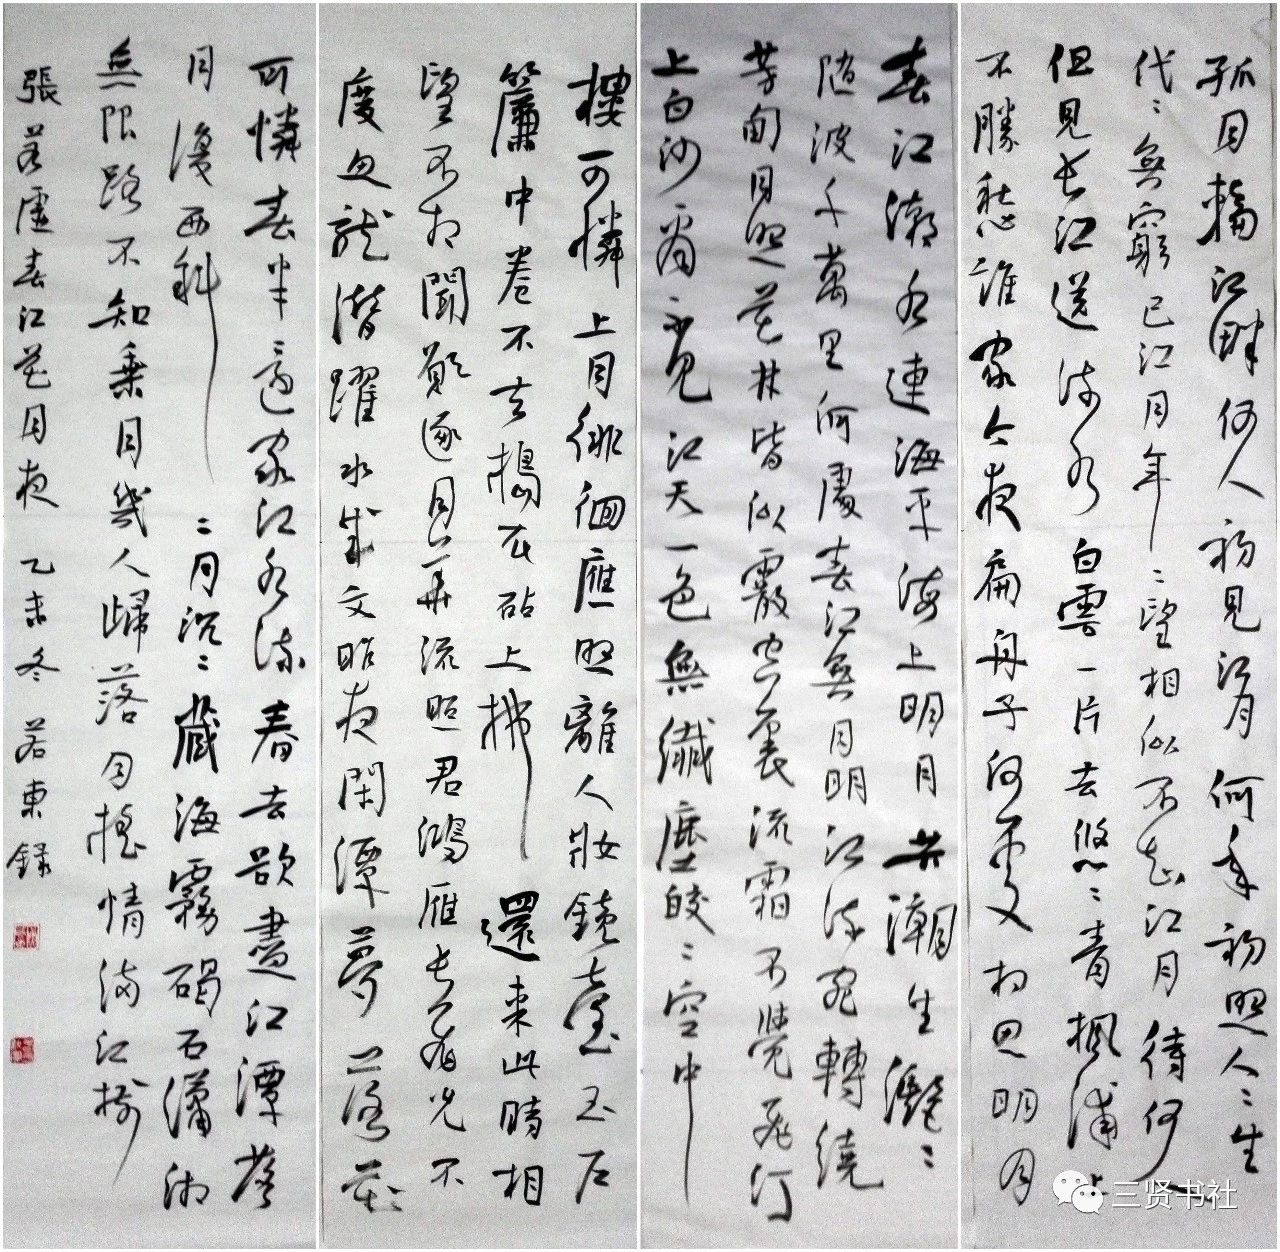 春江潮水連海平海上明月共潮生灩〻
隨波千萬里何處春江無月明江流宛轉繞
芳甸月照花林皆似霰空裏流霜不覺飛汀
上白沙看不見江天一色無纖塵皎〻空中
孤月輪江畔何人初見江月何年初照人〻生
代〻無窮已江月年〻望相似不知江月待何人
但見長江送流水白雲一片去悠〻青楓浦上
不勝愁誰家今夜扁舟子何處相思明月
樓可憐上月徘徊應照離人妝鏡臺玉戶
簾中卷不去搗衣砧上拂還來此時相
望不相聞願逐月華流照君鴻雁長飛光不
度魚龍潛躍水成文昨夜閑潭夢落花
可憐春半還家江水流春去欲盡江潭落
月復西斜〻月沉〻藏海霧碣石瀟湘
無限路不知乘月幾人歸落月搖情滿江樹
張若虛春江花月夜 乙未冬 若東錄
三贤书社